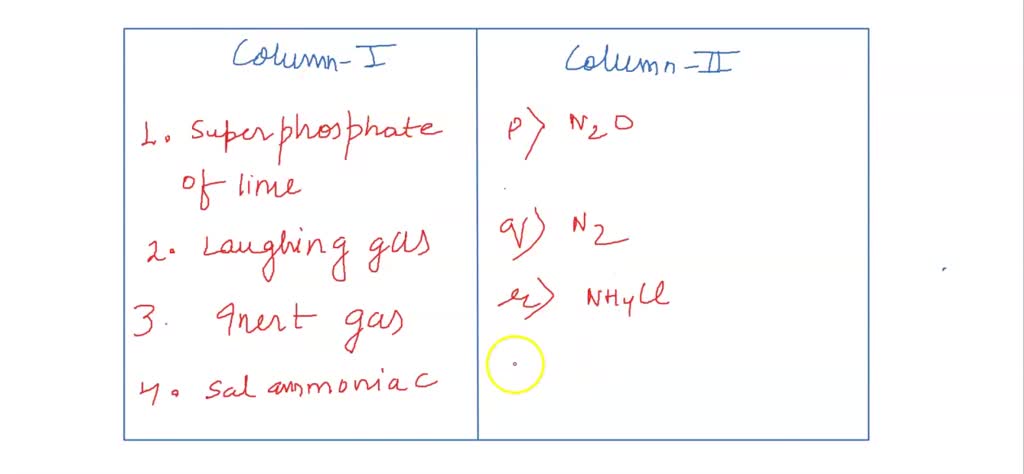 Column-I
Column-II
1. Superphosphate
of lime
2. Laughing gas
3. Inert gas
4. Sal ammoniac
p) N2O
q) N2
r) NH4Cl